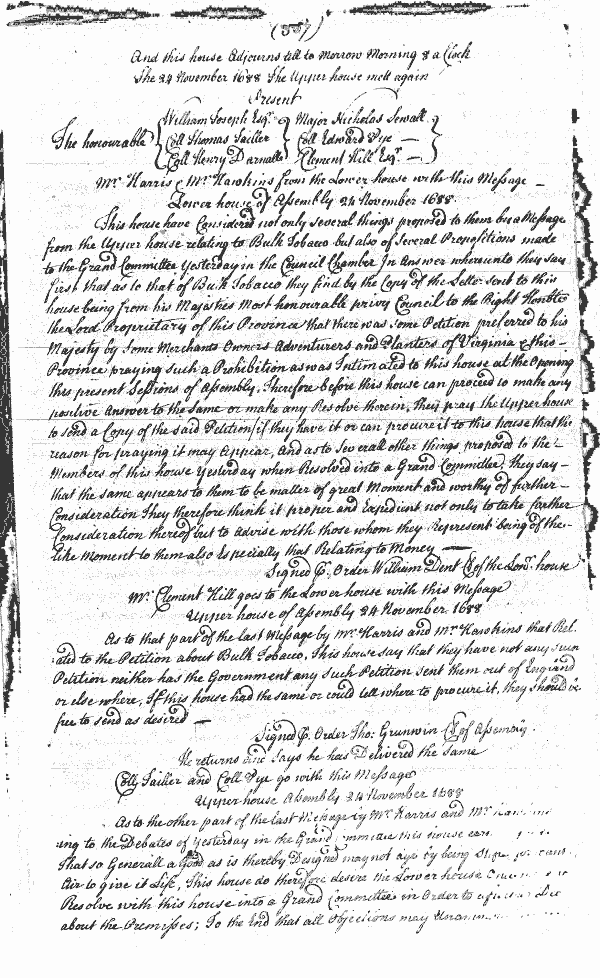 (357)
And this house Adjourns till to Morrow Morning 8 a Clock
The 24 November 1688 The Upper house mett again
Present
The honourable { William Joseph Esqr. Coll Thomas Tailler Coll Henry Darnalle } Major Nicholas Sewall Coll Edward Pye — Clement Hill Esqr. — }
Mr. Harris & Mr. Hawkins from the Lower house with this Message —
Lower house of Assembly 24 November 1688
This house have Considered not only several things proposed to them by a Message
from the Upper house relating to Bulk Tobacco but also of Several Propositions made
to the Grand Committee Yesterday in the Council Chamber In Answer whereunto they say
first that as to that of Bulk Tobacco they find by the Copy of the Letter sent to this
house being from his Majesties Most honourable privy Council to the Right Honble
the Lord Proprietary of this Province that there was some Petition preferred to his
Majesty by Some Merchants Owners Adventurers and Planters of Virginia & this —
Province praying such a Prohibition as was Intimated to this house at the Opening
this present Sessions of Assembly. Therefore before this house can proceed to make any
positive Answer to the same or make any Resolve therein, they pray the Upper house
to send a Copy of the said Petition if they have it or can procure it to this house that the
reason for praying it may Appear, And as to Severall other things proposed to the
Members of this house Yesterday when Resolved into a Grand Committee, they say —
that the same appears to them to be matter of great Moment and worthy of further —
Consideration They therefore think it proper and Expedient not only to take farther
Consideration thereof but to advise with those whom they Represent being of the —
like Moment to them also Especially that Relating to Money —
Signed P. Order William Dent Cl of the Lowr. house
Mr. Clement Hill goes to the Lower house with this Message
Upper house of Assembly 24 November 1688
As to that part of the last Message by Mr. Harris and Mr. Hawkins that Rel-
ated to the Petition about Bulk Tobacco, This house say that they have not any such
Petition neither has the Government any such Petition sent them out of England
or else where, If this house had the same or could tell where to procure it, they should be
free to send as desired —
Signed P. Order Tho: Grunwin Cl of Assembly.
He returns and Says he has Delivered the same
Coll Tailler and Coll Pye go with this Message
Upper house Assembly 24 November 1688
As to the other part of the last Message by Mr. Harris and Mr. Hawkins
ing to the Debates of Yesterday in the Grand Committee this house
That so Generall a Good as is thereby Designed may not by being
Air to give it Life, This house do therefore desire the Lower house
Resolve with this house into a Grand Committee in Order to
about the Premisses; To the End that all Objections may